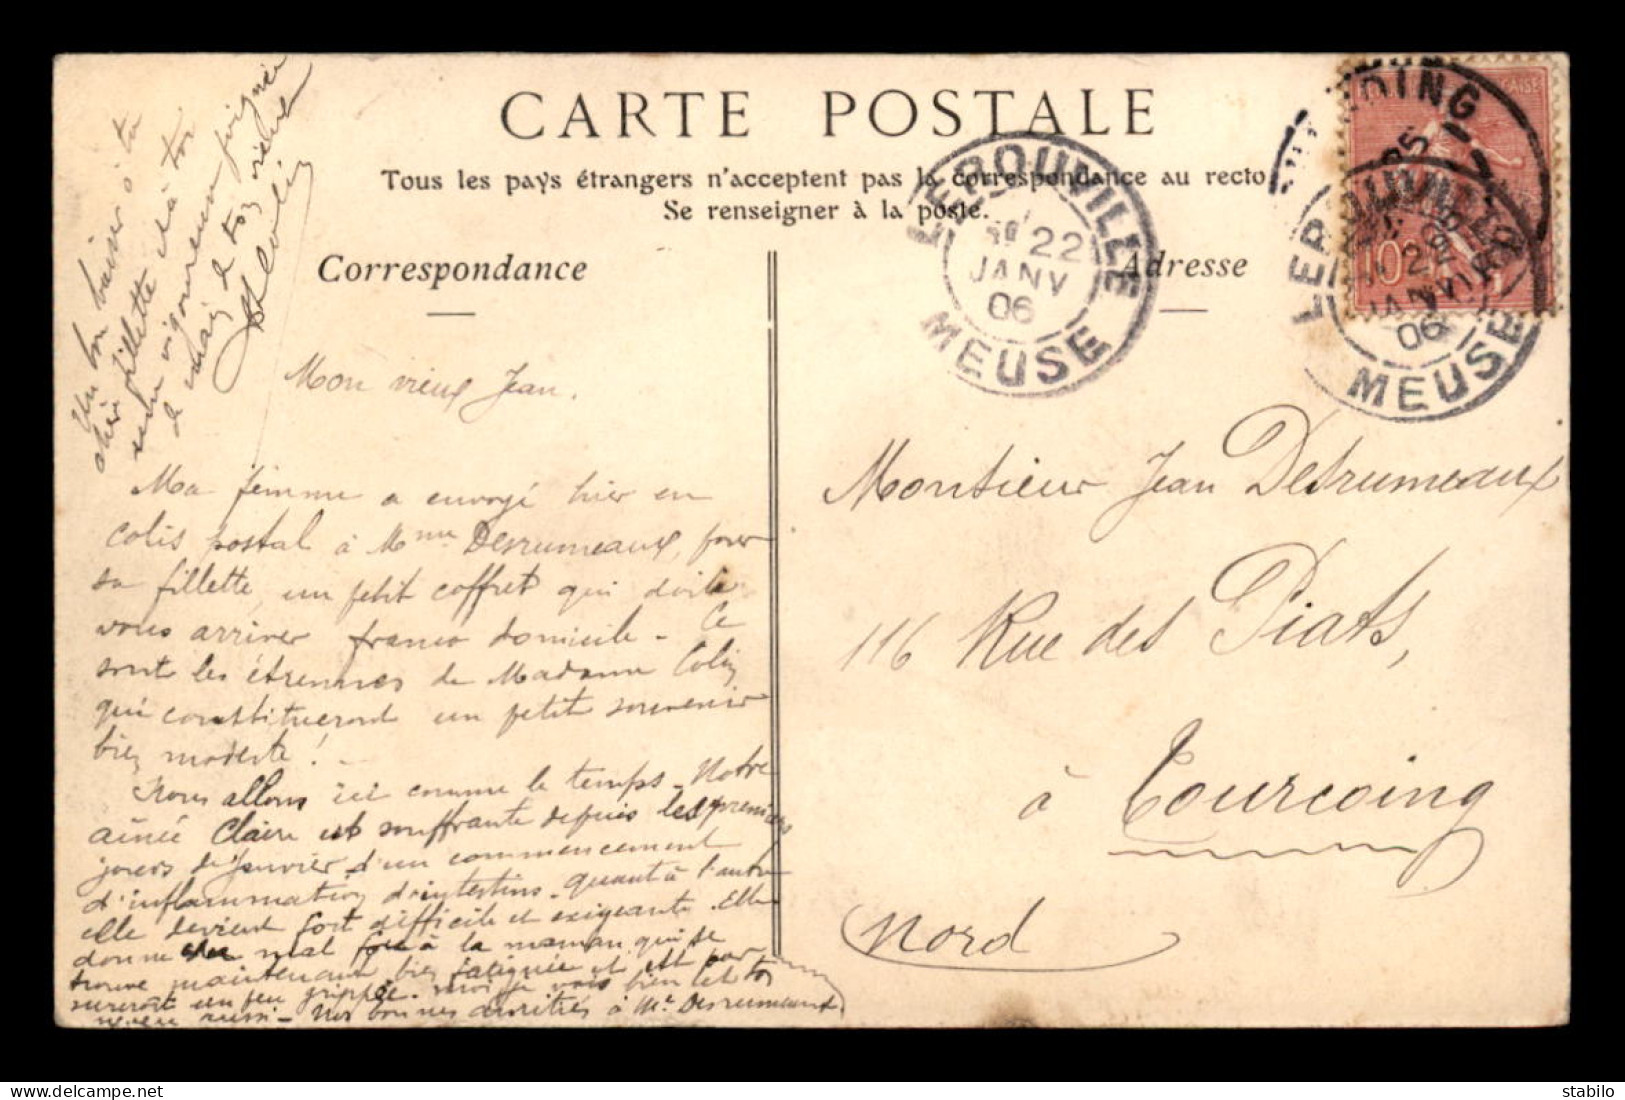 CARTE POSTALE
Tous les pays étrangers n'acceptent pas la correspondance au recto
Se renseigner à la poste.
Correspondance
Adresse
LEROUVILLE
22
JANV
06
MEUSE
LEROUVILLE
22
JANV
06
MEUSE
10
Mon vieux Jean.
Ma femme a envoyé hier en
colis postal à Mme Desrumeaux, pour
sa fillette, un petit coffret qui doit
vous arriver franco domicile - Ce
sont les étrennes de Madame Colin
qui constitueront un petit souvenir
bien modeste ! -
Nous allons ici comme le temps - Notre
aînée Claire est souffrante depuis les premiers
jours de Janvier d'un commencement
d'inflammation d'intestins - quant à l'autre
elle devient fort difficile et exigeante. Elle
donne mal à la maman, qui se
trouve maintenant bien fatiguée et est par
surcroît un peu grippée. moi je vais bien et ton
neveu aussi - Nos bonnes amitiés à Me Desrumeaux.
Un bon baiser à ta
chère fillette et à toi
une vigoureuse poignée
de main de ton vieux
Colin
Monsieur Jean Desrumeaux
116 Rue des Piats,
à Tourcoing
Nord
stabilo